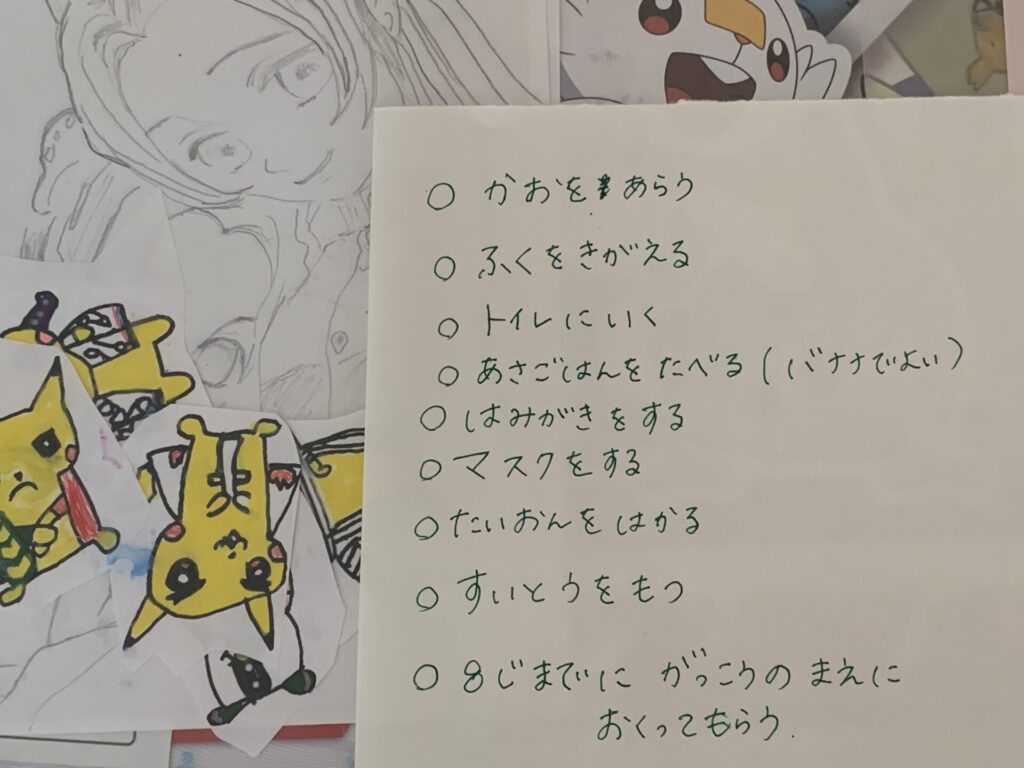 ○ かおをあらう
○ ふくをきがえる
○ トイレにいく
○ あさごはんをたべる(バナナでよい)
○ はみがきをする
○ マスクをする
○ たいおんをはかる
○ すいとうをもつ
○ 8じまでに がっこうの まえに
おくってもらう.